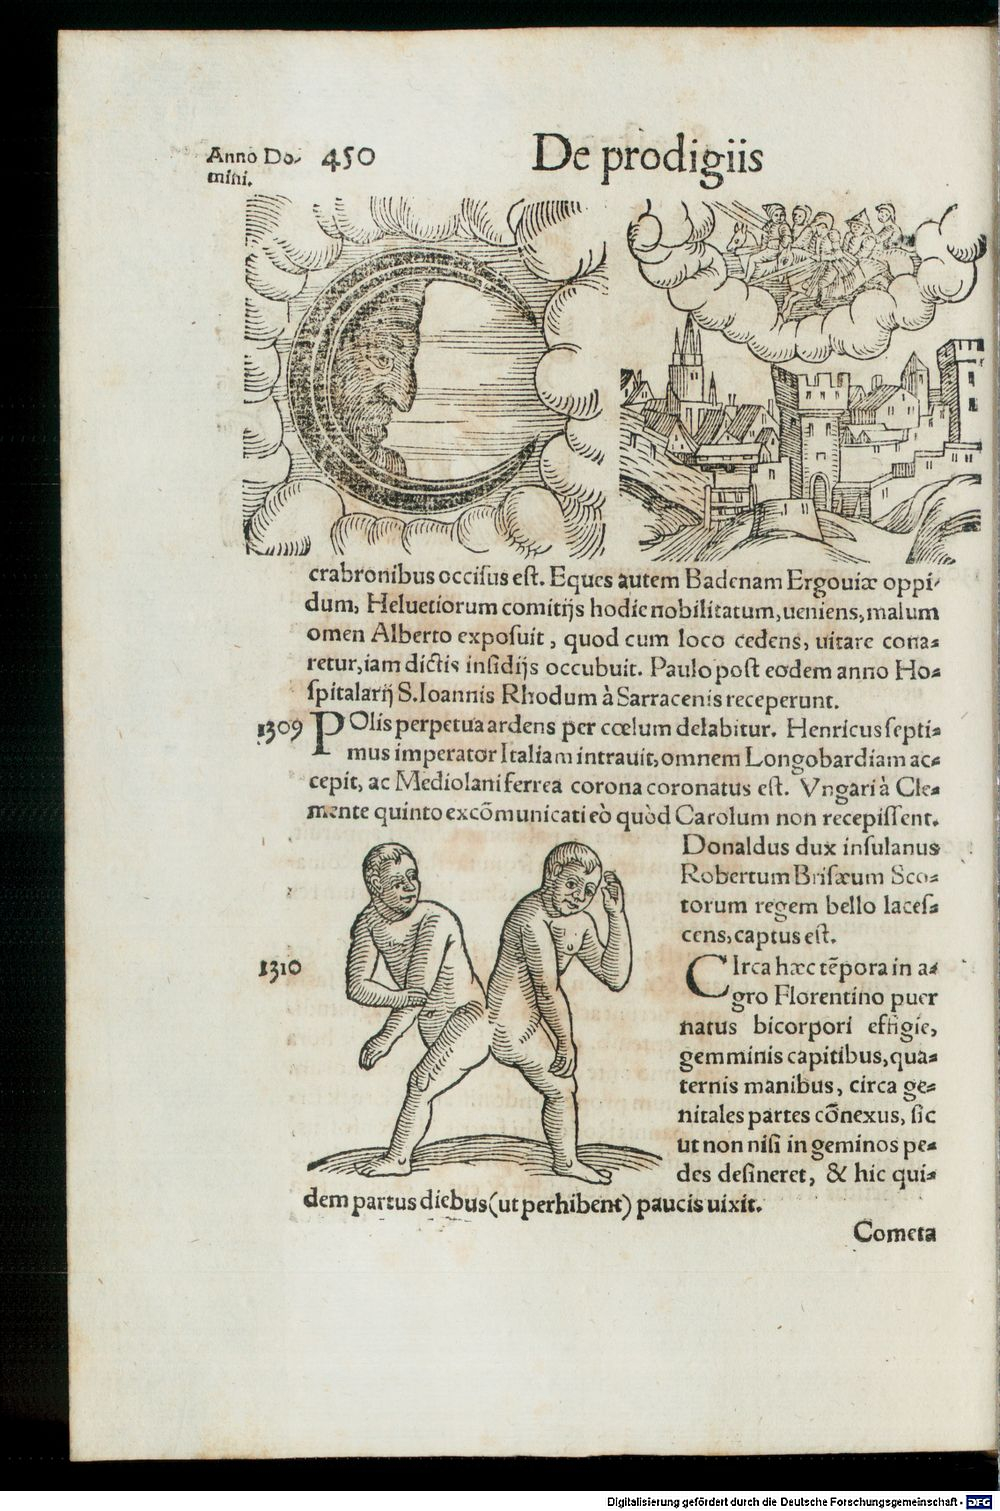 Anno Do-
mini.
450
De prodigiis
crabronibus occisus est. Eques autem Badenam Ergouiæ oppi-
dum, Heluetiorum comitijs hodie nobilitatum, ueniens, malum
omen Alberto exposuit, quod cum loco cedens, uitare cona=
retur, iam dictis insidijs occubuit. Paulo post eodem anno Ho=
spitalarij S. Ioannis Rhodum à Sarracenis receperunt.
1309 POlis perpetua ardens per cœlum delabitur. Henricus septi=
mus imperator Italiam intrauit, omnem Longobardiam ac=
cepit, ac Mediolani ferrea corona coronatus est. Vngari à Cle=
mente quinto excõmunicati eò quòd Carolum non recepissent.
Donaldus dux insulanus
Robertum Brisæum Sco=
torum regem bello laces=
cens, captus est.
1310 CIrca hæc tẽpora in a=
gro Florentino puer
natus bicorpori effigie,
gemminis capitibus, qua=
ternis manibus, circa ge=
nitales partes cõnexus, sic
ut non nisi in geminos pe=
des desineret, & hic qui=
dem partus diebus (ut perhibent) paucis uixit.
Cometa
Digitalisierung gefördert durch die Deutsche Forschungsgemeinschaft - DFG